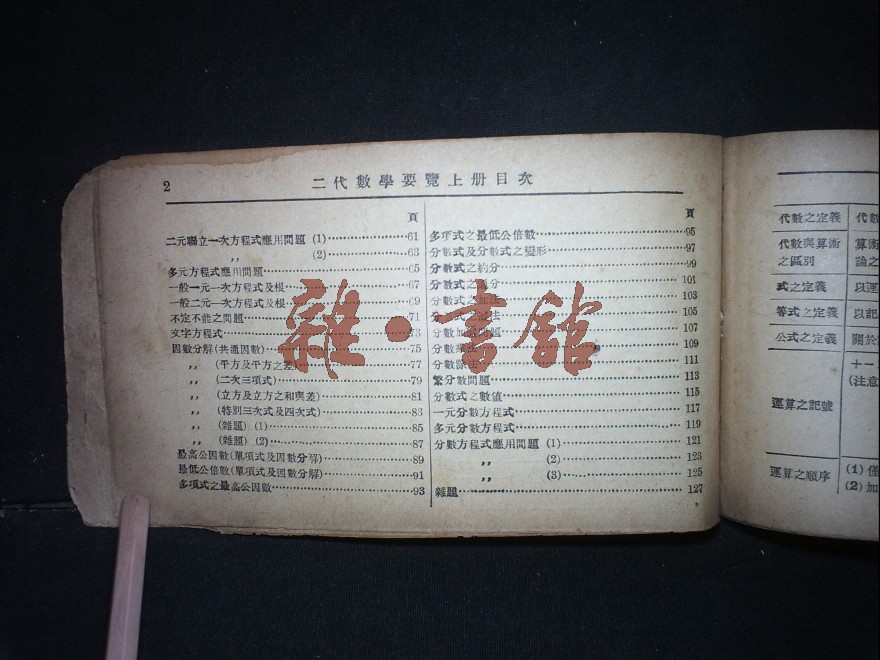 2
二代數學要覽上册目次
頁
二元聯立一次方程式應用問題 (1)……61
,, (2)……63
多元方程式應用問題……65
一般一元一次方程式及根……67
一般二元一次方程式及根……69
不定不能之問題……71
文字方程式……73
因數分解(共通因數)……75
,, (平方及平方之差)……77
,, (二次三項式)……79
,, (立方及立方之和與差)……81
,, (特別三次式及四次式)……83
,, (雜題) (1)……85
,, (雜題) (2)……87
最高公因數(單項式及因數分解)……89
最低公倍數(單項式及因數分解)……91
多項式之最高公因數……93
頁
多項式之最低公倍數……95
分數式及分數式之變形……97
分數式之約分……99
分數式之通分……101
分數式之加法……103
分數式之減法……105
分數加減問題……107
分數乘法……109
分數除法……111
繁分數問題……113
分數式之數值……115
一元分數方程式……117
多元分數方程式……119
分數方程式應用問題 (1)……121
,, (2)……123
,, (3)……125
雜題……127
雜·書館
代數之定義 代數
代數與算術之區別 算術論之
式之定義 以運
等式之定義 以記
公式之定義 關於
運算之記號 十一
(注意
運算之順序 (1) 僅
(2) 加